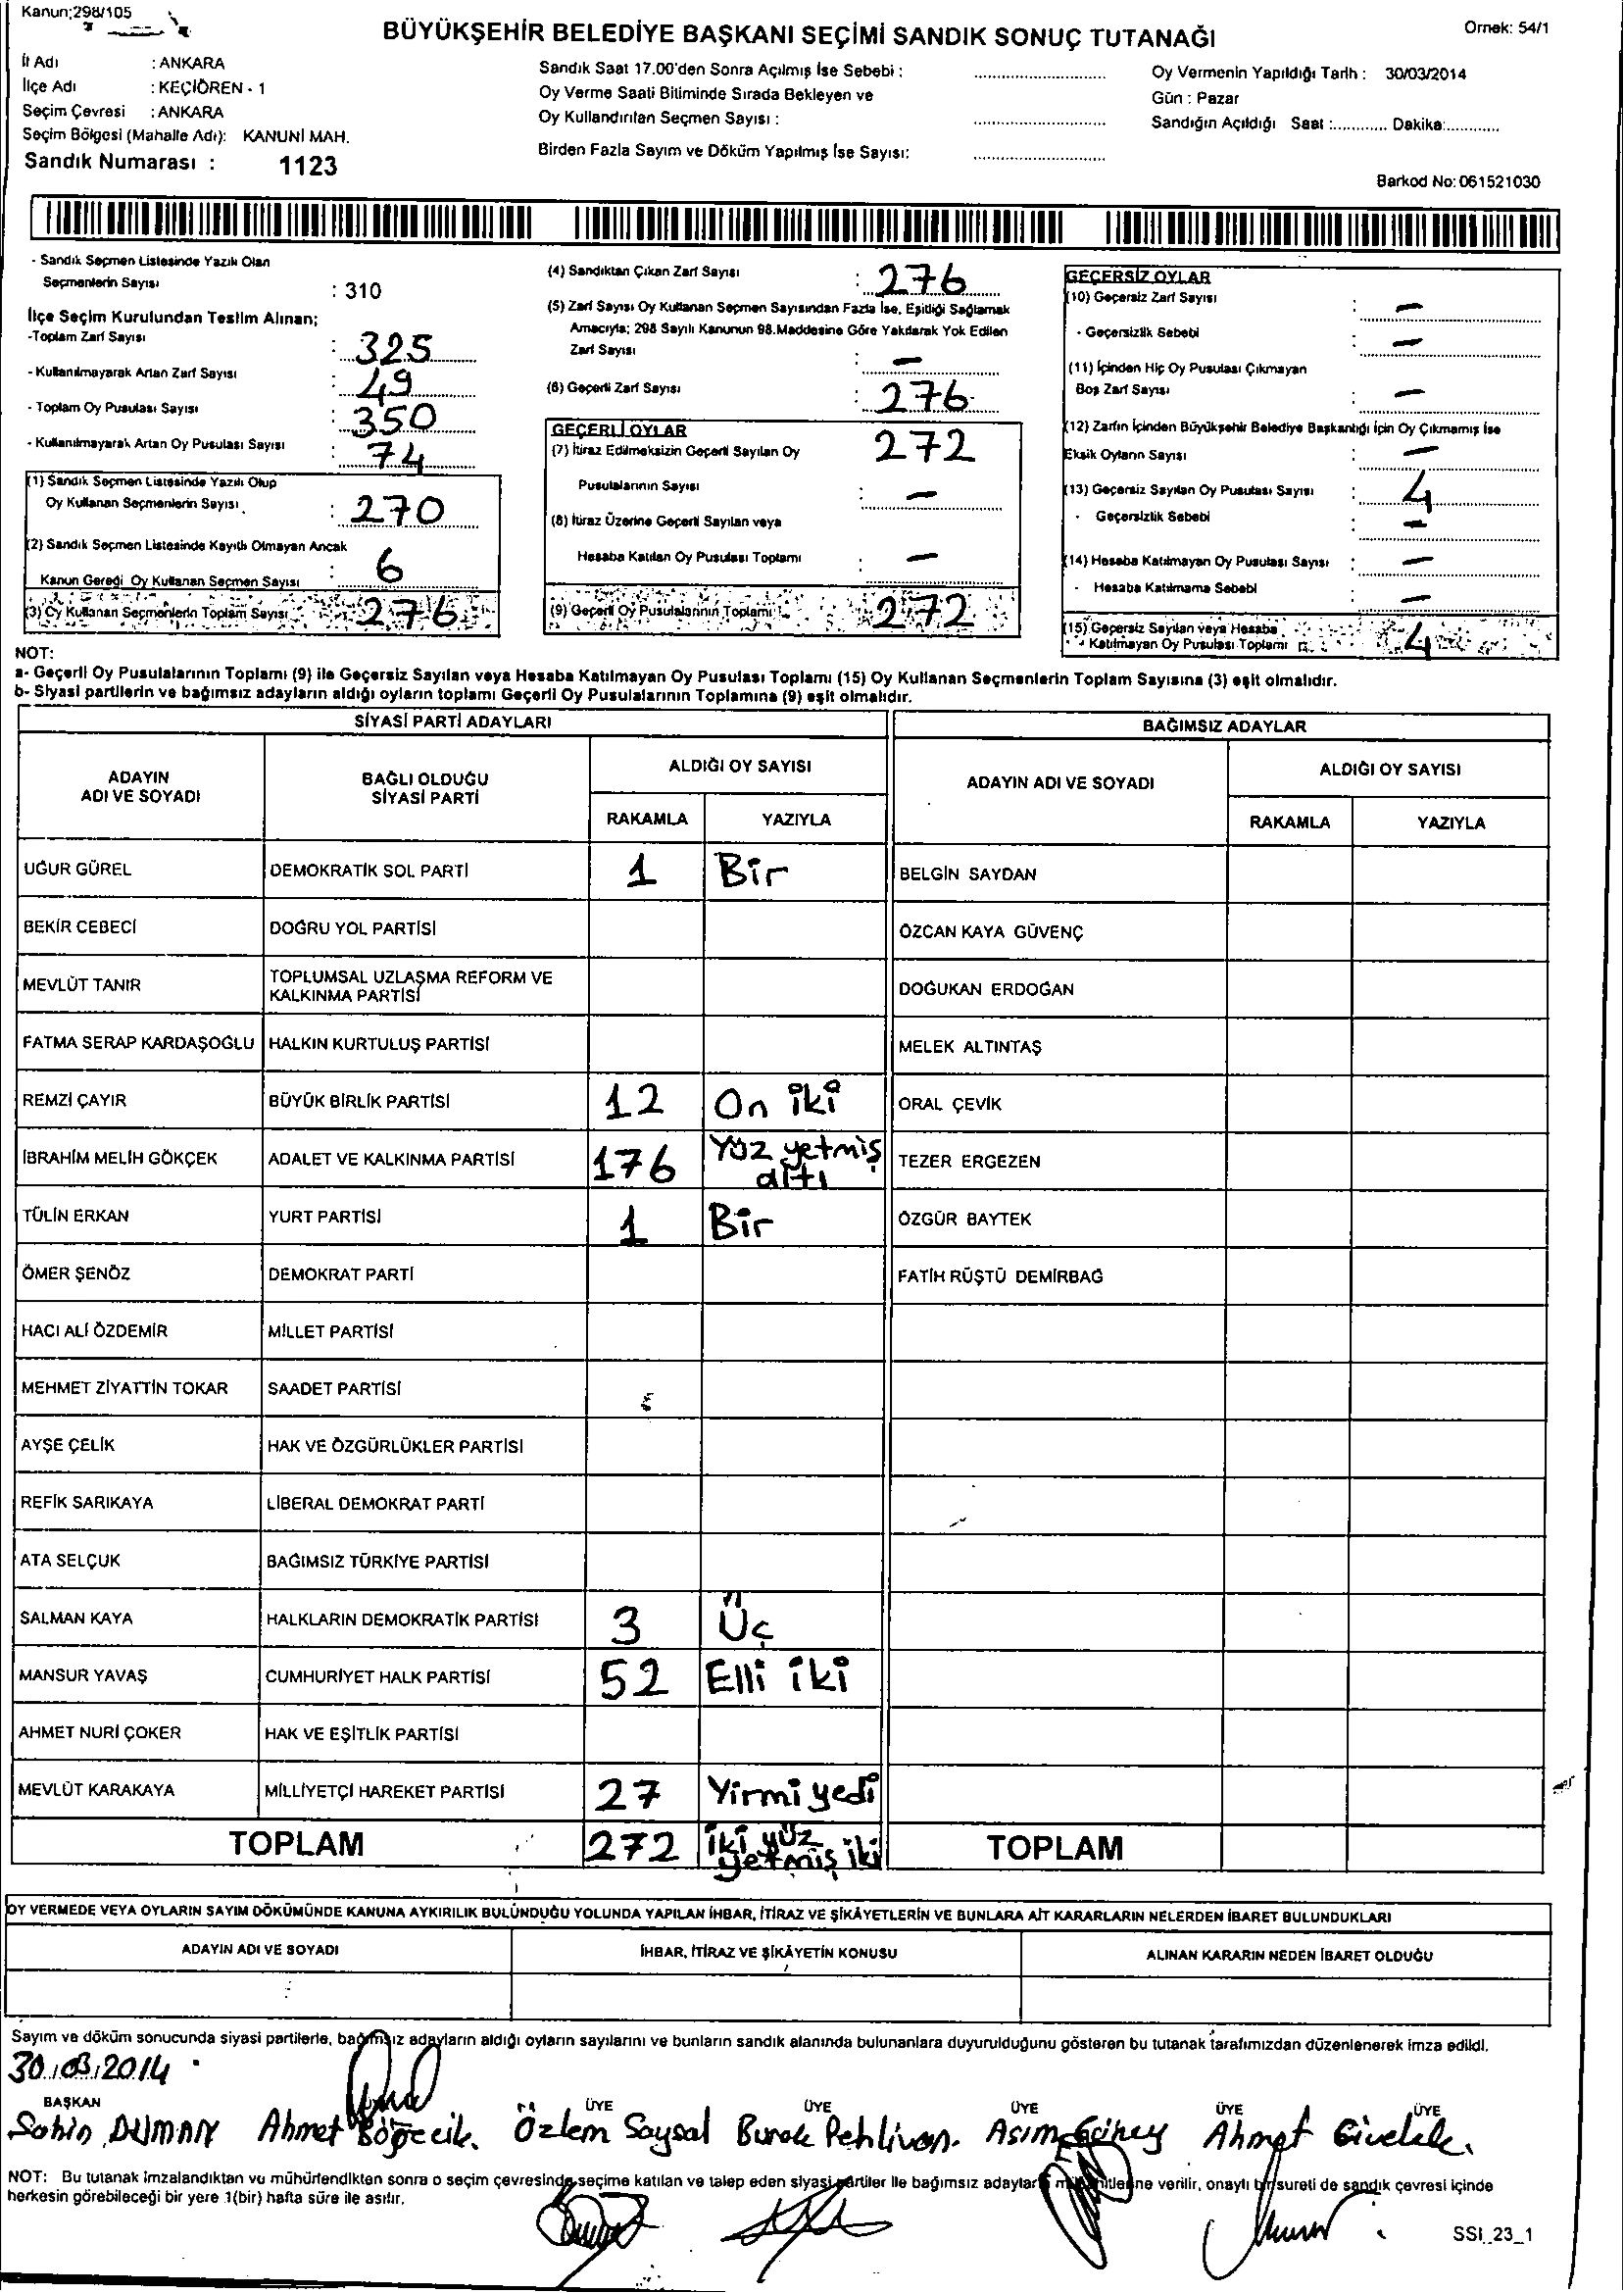 Kanun;298/105
BÜYÜKŞEHİR BELEDİYE BAŞKANI SEÇİMİ SANDIK SONUÇ TUTANAĞI
Örnek: 54/1
İl Adı : ANKARA
İlçe Adı : KEÇİÖREN - 1
Seçim Çevresi : ANKARA
Seçim Bölgesi (Mahalle Adı): KANUNİ MAH.
Sandık Numarası : 1123
Sandık Saat 17.00'den Sonra Açılmış İse Sebebi :
Oy Verme Saati Bitiminde Sırada Bekleyen ve
Oy Kullandırılan Seçmen Sayısı :
Birden Fazla Sayım ve Döküm Yapılmış İse Sayısı:
Oy Vermenin Yapıldığı Tarih : 30/03/2014
Gün : Pazar
Sandığın Açıldığı Saat :............ Dakika:............
Barkod No: 061521030
- Sandık Seçmen Listesinde Yazılı Olan
Seçmenlerin Sayısı : 310
İlçe Seçim Kurulundan Teslim Alınan;
-Toplam Zarf Sayısı : 325
- Kullanılmayarak Artan Zarf Sayısı : 49
- Toplam Oy Pusulası Sayısı : 350
- Kullanılmayarak Artan Oy Pusulası Sayısı : 74
(1) Sandık Seçmen Listesinde Yazılı Olup
Oy Kullanan Seçmenlerin Sayısı : 270
(2) Sandık Seçmen Listesinde Kayıtlı Olmayan Ancak
Kanun Gereği Oy Kullanan Seçmen Sayısı : 6
(3) Oy Kullanan Seçmenlerin Toplam Sayısı : 276
(4) Sandıktan Çıkan Zarf Sayısı : 276
(5) Zarf Sayısı Oy Kullanan Seçmen Sayısından Fazla İse, Eşitliği Sağlamak
Amacıyla; 298 Sayılı Kanunun 98.Maddesine Göre Yakılarak Yok Edilen
Zarf Sayısı : -
(6) Geçerli Zarf Sayısı : 276
GEÇERLİ OYLAR
(7) İtiraz Edilmeksizin Geçerli Sayılan Oy 272
Pusulalarının Sayısı : -
(8) İtiraz Üzerine Geçerli Sayılan veya
Hesaba Katılan Oy Pusulası Toplamı : -
(9) Geçerli Oy Pusulalarının Toplamı : 272
GEÇERSİZ OYLAR
(10) Geçersiz Zarf Sayısı : -
- Geçersizlik Sebebi : -
(11) İçinden Hiç Oy Pusulası Çıkmayan
Boş Zarf Sayısı : -
(12) Zarfın İçinden Büyükşehir Belediye Başkanlığı İçin Oy Çıkmamış İse
Eksik Oyların Sayısı : -
(13) Geçersiz Sayılan Oy Pusulası Sayısı : 4
- Geçersizlik Sebebi : -
(14) Hesaba Katılmayan Oy Pusulası Sayısı : -
- Hesaba Katılmama Sebebi : -
(15) Geçersiz Sayılan veya Hesaba
- Katılmayan Oy Pusulası Toplamı : 4
NOT:
a- Geçerli Oy Pusulalarının Toplamı (9) ile Geçersiz Sayılan veya Hesaba Katılmayan Oy Pusulası Toplamı (15) Oy Kullanan Seçmenlerin Toplam Sayısına (3) eşit olmalıdır.
b- Siyasi partilerin ve bağımsız adayların aldığı oyların toplamı Geçerli Oy Pusulalarının Toplamına (9) eşit olmalıdır.
SİYASİ PARTİ ADAYLARI BAĞIMSIZ ADAYLAR
ADAYIN ADI VE SOYADI BAĞLI OLDUĞU SİYASİ PARTİ ALDIĞI OY SAYISI ADAYIN ADI VE SOYADI ALDIĞI OY SAYISI
RAKAMLA YAZIYLA RAKAMLA YAZIYLA
UĞUR GÜREL DEMOKRATİK SOL PARTİ 1 Bir BELGİN SAYDAN
BEKİR CEBECİ DOĞRU YOL PARTİSİ ÖZCAN KAYA GÜVENÇ
MEVLÜT TANIR TOPLUMSAL UZLAŞMA REFORM VE KALKINMA PARTİSİ DOĞUKAN ERDOĞAN
FATMA SERAP KARDAŞOĞLU HALKIN KURTULUŞ PARTİSİ MELEK ALTINTAŞ
REMZİ ÇAYIR BÜYÜK BİRLİK PARTİSİ 12 On iki ORAL ÇEVİK
İBRAHİM MELİH GÖKÇEK ADALET VE KALKINMA PARTİSİ 176 Yüz yetmiş altı TEZER ERGEZEN
TÜLİN ERKAN YURT PARTİSİ 1 Bir ÖZGÜR BAYTEK
ÖMER ŞENÖZ DEMOKRAT PARTİ FATİH RÜŞTÜ DEMİRBAĞ
HACI ALİ ÖZDEMİR MİLLET PARTİSİ
MEHMET ZİYATTİN TOKAR SAADET PARTİSİ
AYŞE ÇELİK HAK VE ÖZGÜRLÜKLER PARTİSİ
REFİK SARIKAYA LİBERAL DEMOKRAT PARTİ
ATA SELÇUK BAĞIMSIZ TÜRKİYE PARTİSİ
SALMAN KAYA HALKLARIN DEMOKRATİK PARTİSİ 3 Üç
MANSUR YAVAŞ CUMHURİYET HALK PARTİSİ 52 Elli iki
AHMET NURİ ÇOKER HAK VE EŞİTLİK PARTİSİ
MEVLÜT KARAKAYA MİLLİYETÇİ HAREKET PARTİSİ 27 Yirmi yedi
TOPLAM 272 İki yüz yetmiş iki TOPLAM
OY VERMEDE VEYA OYLARIN SAYIM DÖKÜMÜNDE KANUNA AYKIRILIK BULUNDUĞU YOLUNDA YAPILAN İHBAR, İTİRAZ VE ŞİKÂYETLERİN VE BUNLARA AİT KARARLARIN NELERDEN İBARET BULUNDUKLARI
ADAYIN ADI VE SOYADI İHBAR, İTİRAZ VE ŞİKÂYETİN KONUSU ALINAN KARARIN NEDEN İBARET OLDUĞU
Sayım ve döküm sonucunda siyasi partilerle, bağımsız adayların aldığı oyların sayılarını ve bunların sandık alanında bulunanlara duyurulduğunu gösteren bu tutanak tarafımızdan düzenlenerek imza edildi.
30.03.2014
BAŞKAN ÜYE ÜYE ÜYE ÜYE ÜYE
Şahin DUMAN Ahmet Böğrecik. Özlem Soysal Burak Pehlivan. Asım Güney Ahmet Givelek.
NOT: Bu tutanak imzalandıktan ve mühürlendikten sonra o seçim çevresinde seçime katılan ve talep eden siyasi partiler ile bağımsız adayların müşahitlerine verilir, onaylı bir sureti de sandık çevresi içinde
herkesin görebileceği bir yere 1(bir) hafta süre ile asılır.
SSI_23_1